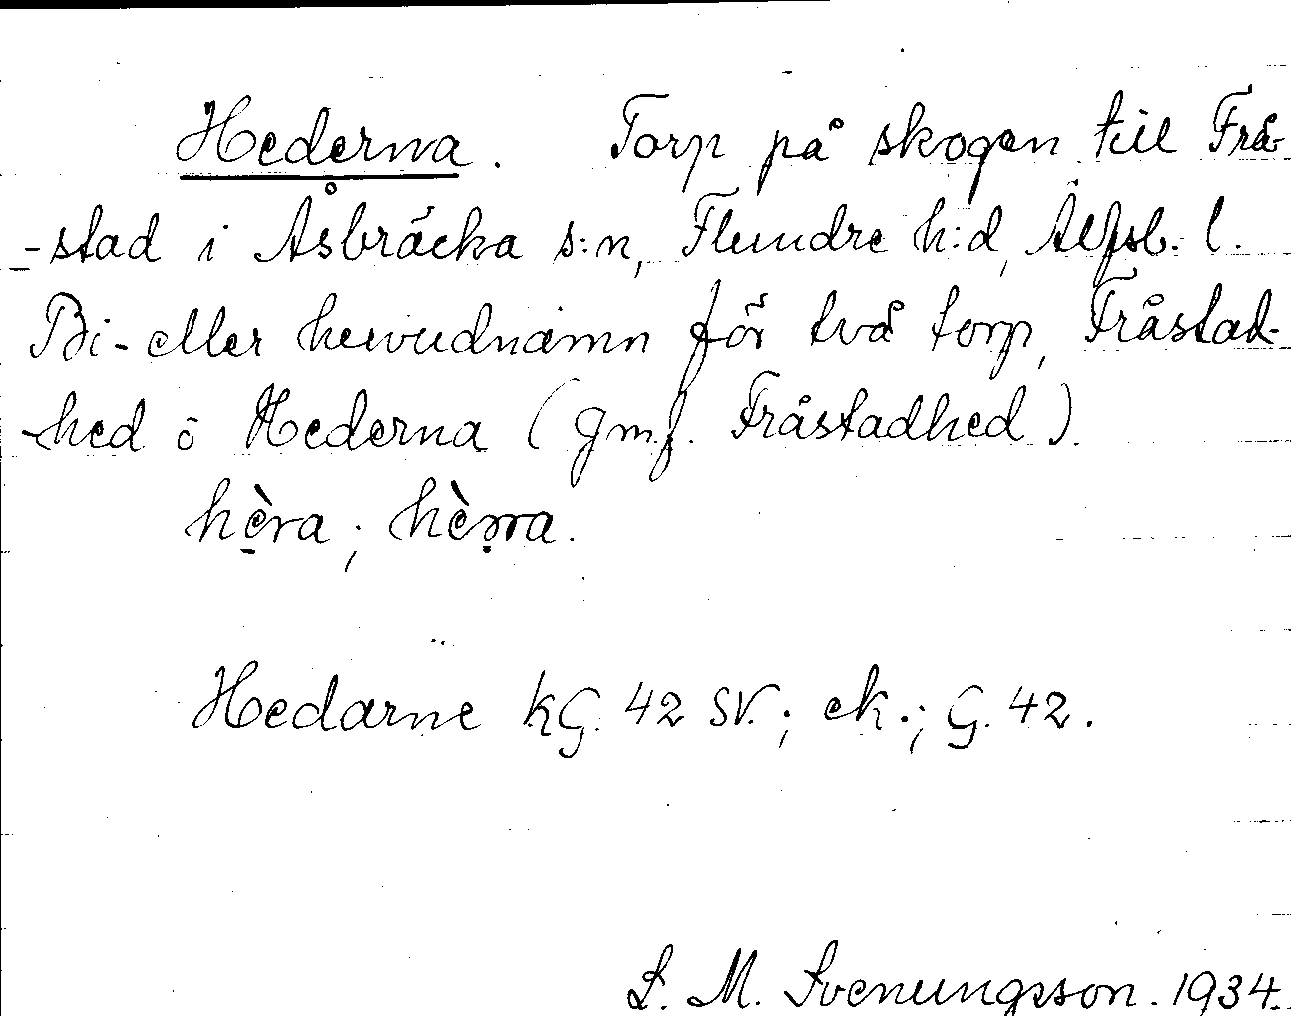 Hederna. Torp på skogen till Frå-
-stad i Åsbräcka s:n, Flundre h:d, Älfsb. l.
Bi- eller huvudnamn för två torp, Fråstad-
-hed o Hederna (gm.f. Fråstadhed).
hèra; hèrra.
Hedarne kG. 42 SV.; ek.; G. 42.
S. M. Svenungsson. 1934.